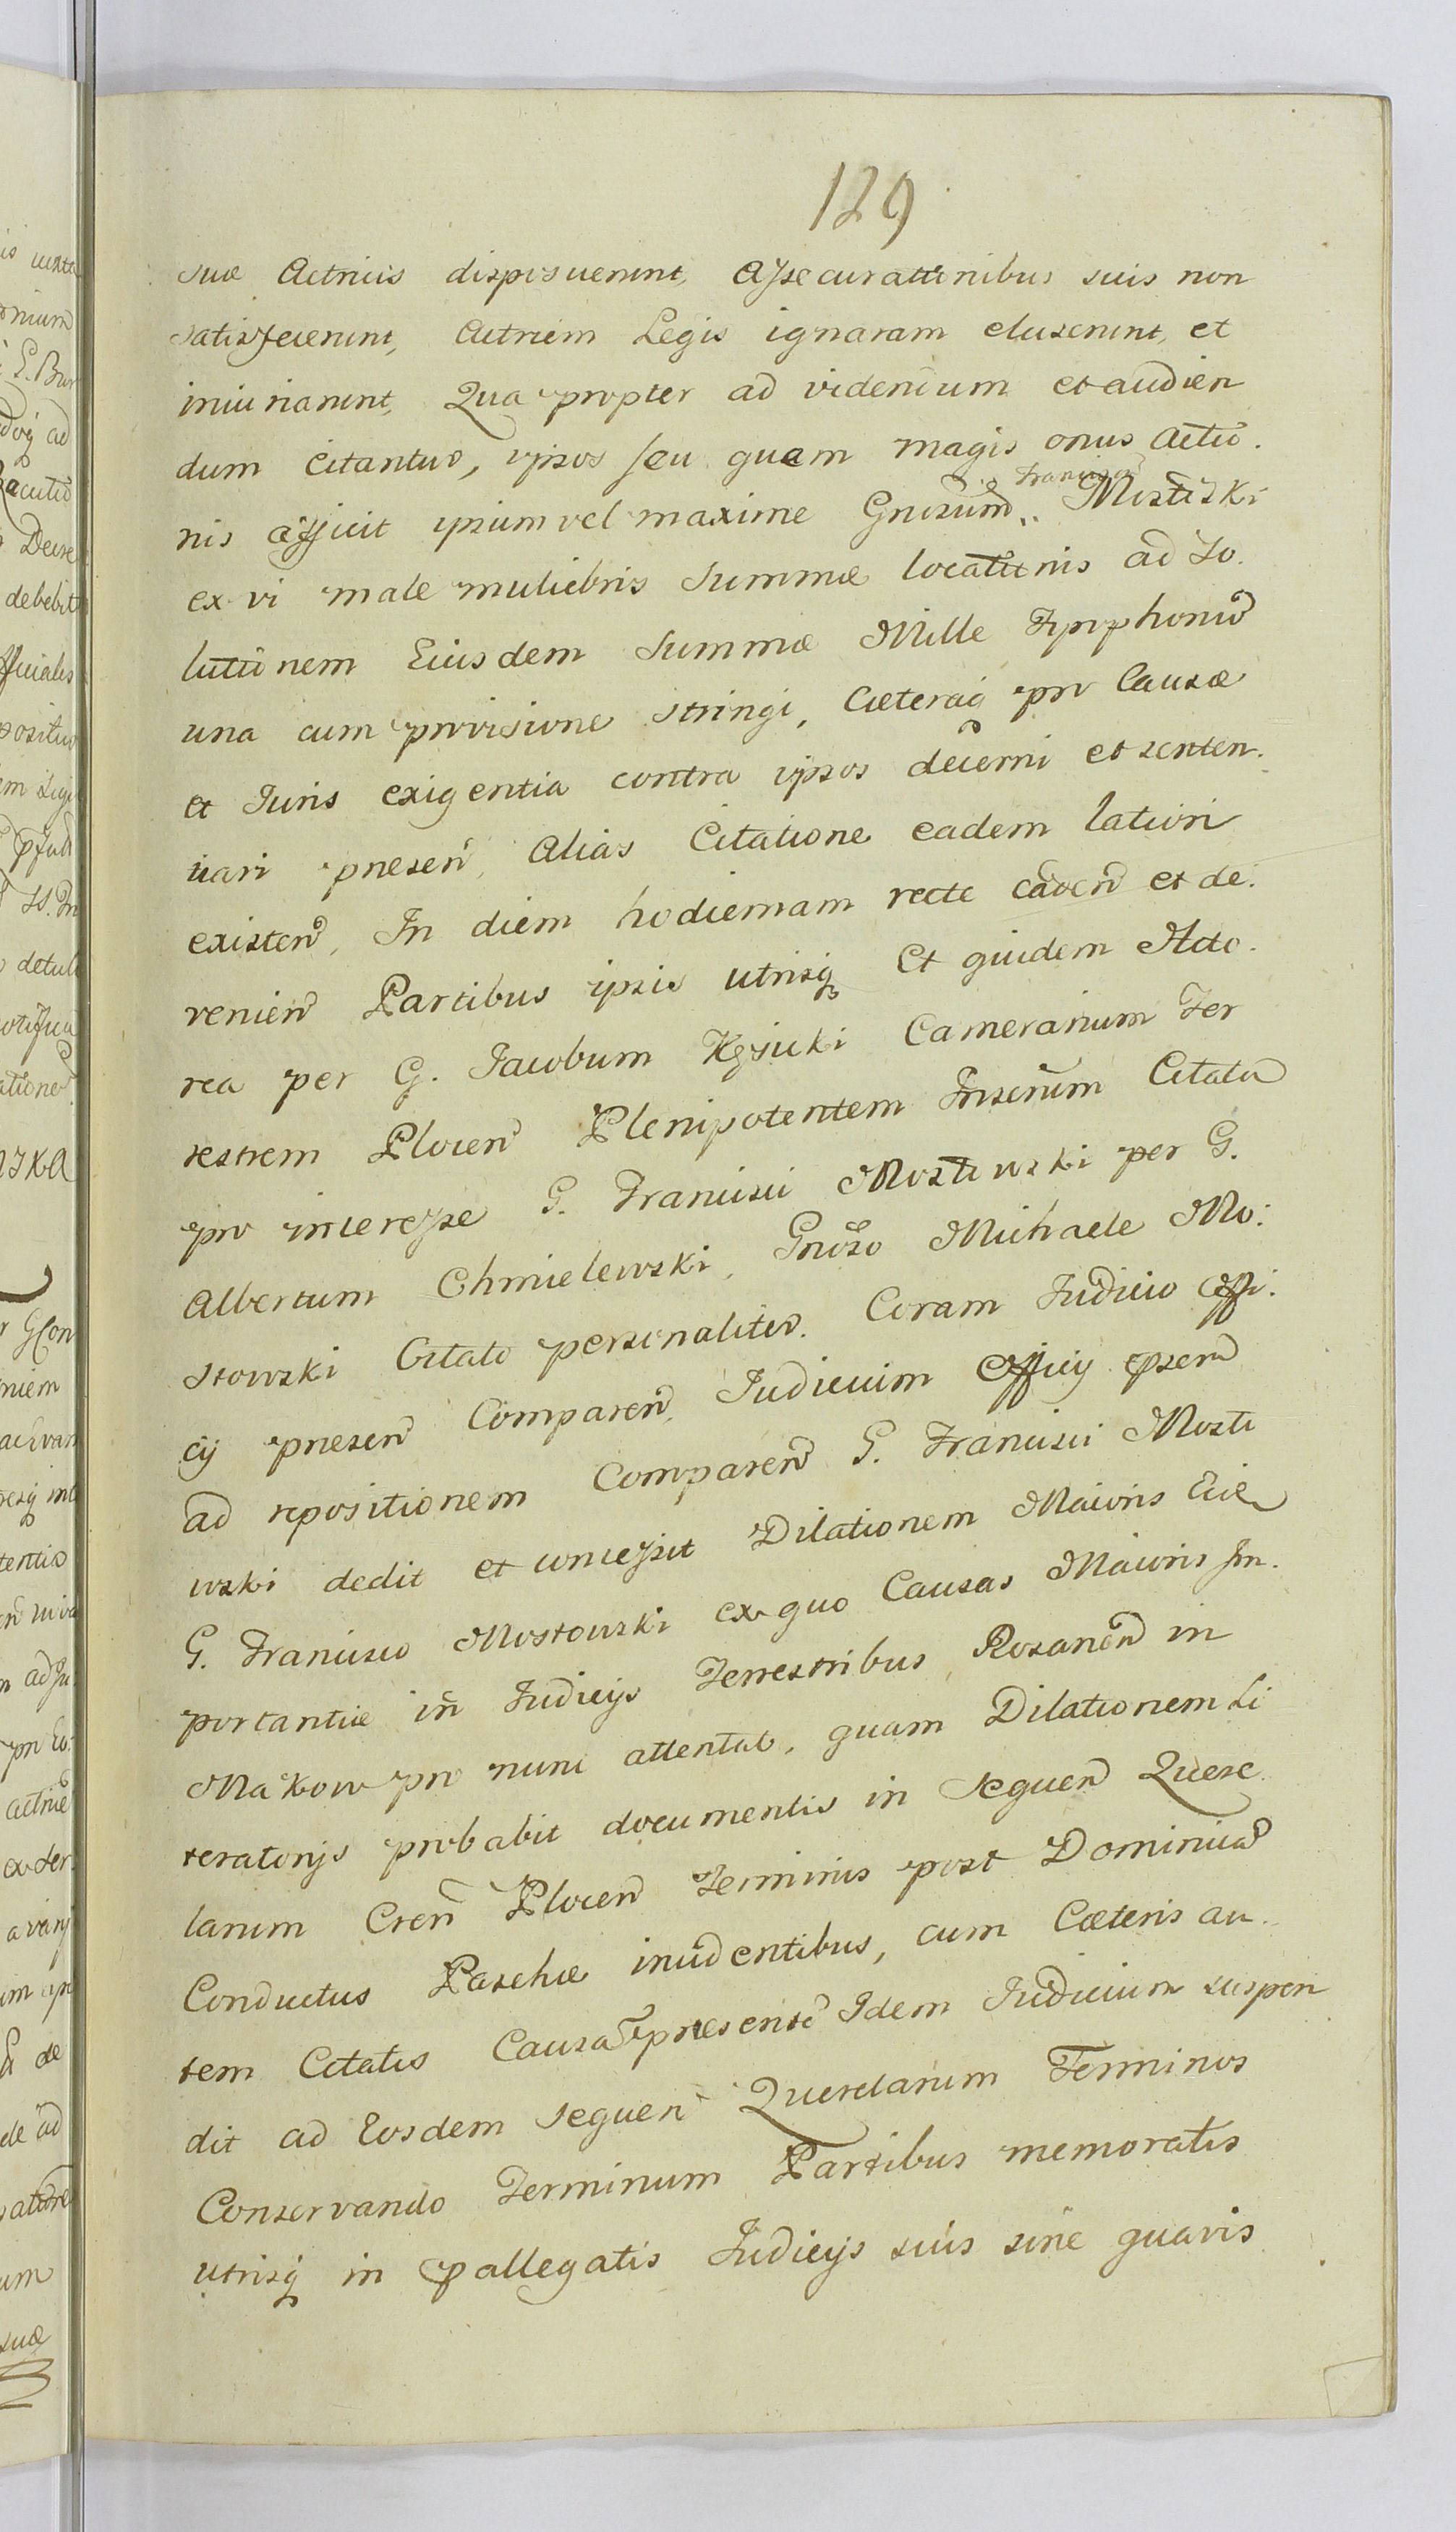 129
suæ Actricis disposuerunt, Assecurationibus suis non
satisfecerunt, Actricem Legis ignaram eluserunt, et
iniuriarunt, Qua propter ad videndum et audien
dum Citantur, ipsos seu quem magis onus Actio.
nis afficit ipsum vel maxime Gnosum Francisco Mostoski
ex vi male muliebris Summæ locationis ad So.
lutionem Eiusdem Summæ Mille Typphonu
una cum provisione stringi, Cæteraq pro Causæ
et Iuris exigentia contra ipsos decerni et senten.
tiari præsen, Alias Citatione eadem latiori
existen, In diem hodiernam recte caden et de.
venien Partibus ipsis utrisq Et quidem Acto.
rea per G. Jacobum Kęsicki Camerarium Ter
restrem Plocen Plenipotentem Inserum Citata
pro interesse G. Francisci Mostowski per G.
Albertum Chmielewski, Gnoso Michaele Mo:
stowski Citato personaliter. Coram Iudicio Offi:
cij præsen Comparen, Iudicium Officij præsen
ad repositionem Comparen G. Francisci Mosto
wski dedit et concessit Dilationem Maioris Eidem
G. Francisco Mostowski ex quo Causas Maioris Im.
portantiæ in Iudicijs Terrestribus Rosanen in
Makow pro nunc attentat, quam Dilationem Li
teratorijs probabit documentis in Sequen Quere
larum Cren Plocen Terminis post Dominica
Conductus Paschæ incidentibus, cum Cæteris au.
tem Citatis Causa præsente Idem Iudicium suspen
dit ad Eosdem sequen Querelarum Terminos
Conservando Terminum Partibus memoratis
utrisq in præallegatis Iudicijs suis sine quavis